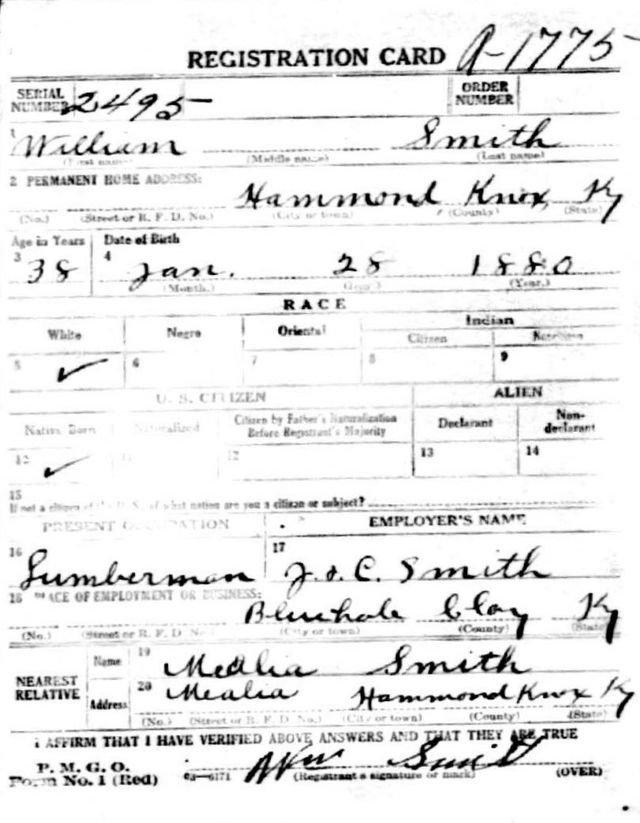 REGISTRATION CARD A-1775
SERIAL NUMBER 2495 ORDER NUMBER
1 William Smith
(First name) (Middle name) (Last name)
2 PERMANENT HOME ADDRESS:
Hammond Knox Ky
(No.) (Street or R. F. D. No.) (City or town) (County) (State)
Age in Years Date of Birth
3 38 4 Jan. 28 1880
(Month.) (Day.) (Year.)
RACE
White Negro Oriental Indian
Citizen Noncitizen
5 ✓ 6 7 8 9
U. S. CITIZEN ALIEN
Native Born Naturalized Citizen by Father's Naturalization Before Registrant's Majority Declarant Non-declarant
✓ 11 12 13 14
15
If not a citizen of the U. S., of what nation are you a citizen or subject?
PRESENT OCCUPATION EMPLOYER'S NAME
16 17
Lumberman J. & C. Smith
18 PLACE OF EMPLOYMENT OR BUSINESS:
Bluehole Clay Ky
(No.) (Street or R. F. D. No.) (City or town) (County) (State)
NEAREST RELATIVE Name 19 Mealia Smith
Address 20 Mealia Hammond Knox Ky
(No.) (Street or R. F. D. No.) (City or town) (County) (State)
I AFFIRM THAT I HAVE VERIFIED ABOVE ANSWERS AND THAT THEY ARE TRUE
P. M. G. O.
Form No. 1 (Red) 03—6171 Wm Smith (OVER)
(Registrant's signature or mark)